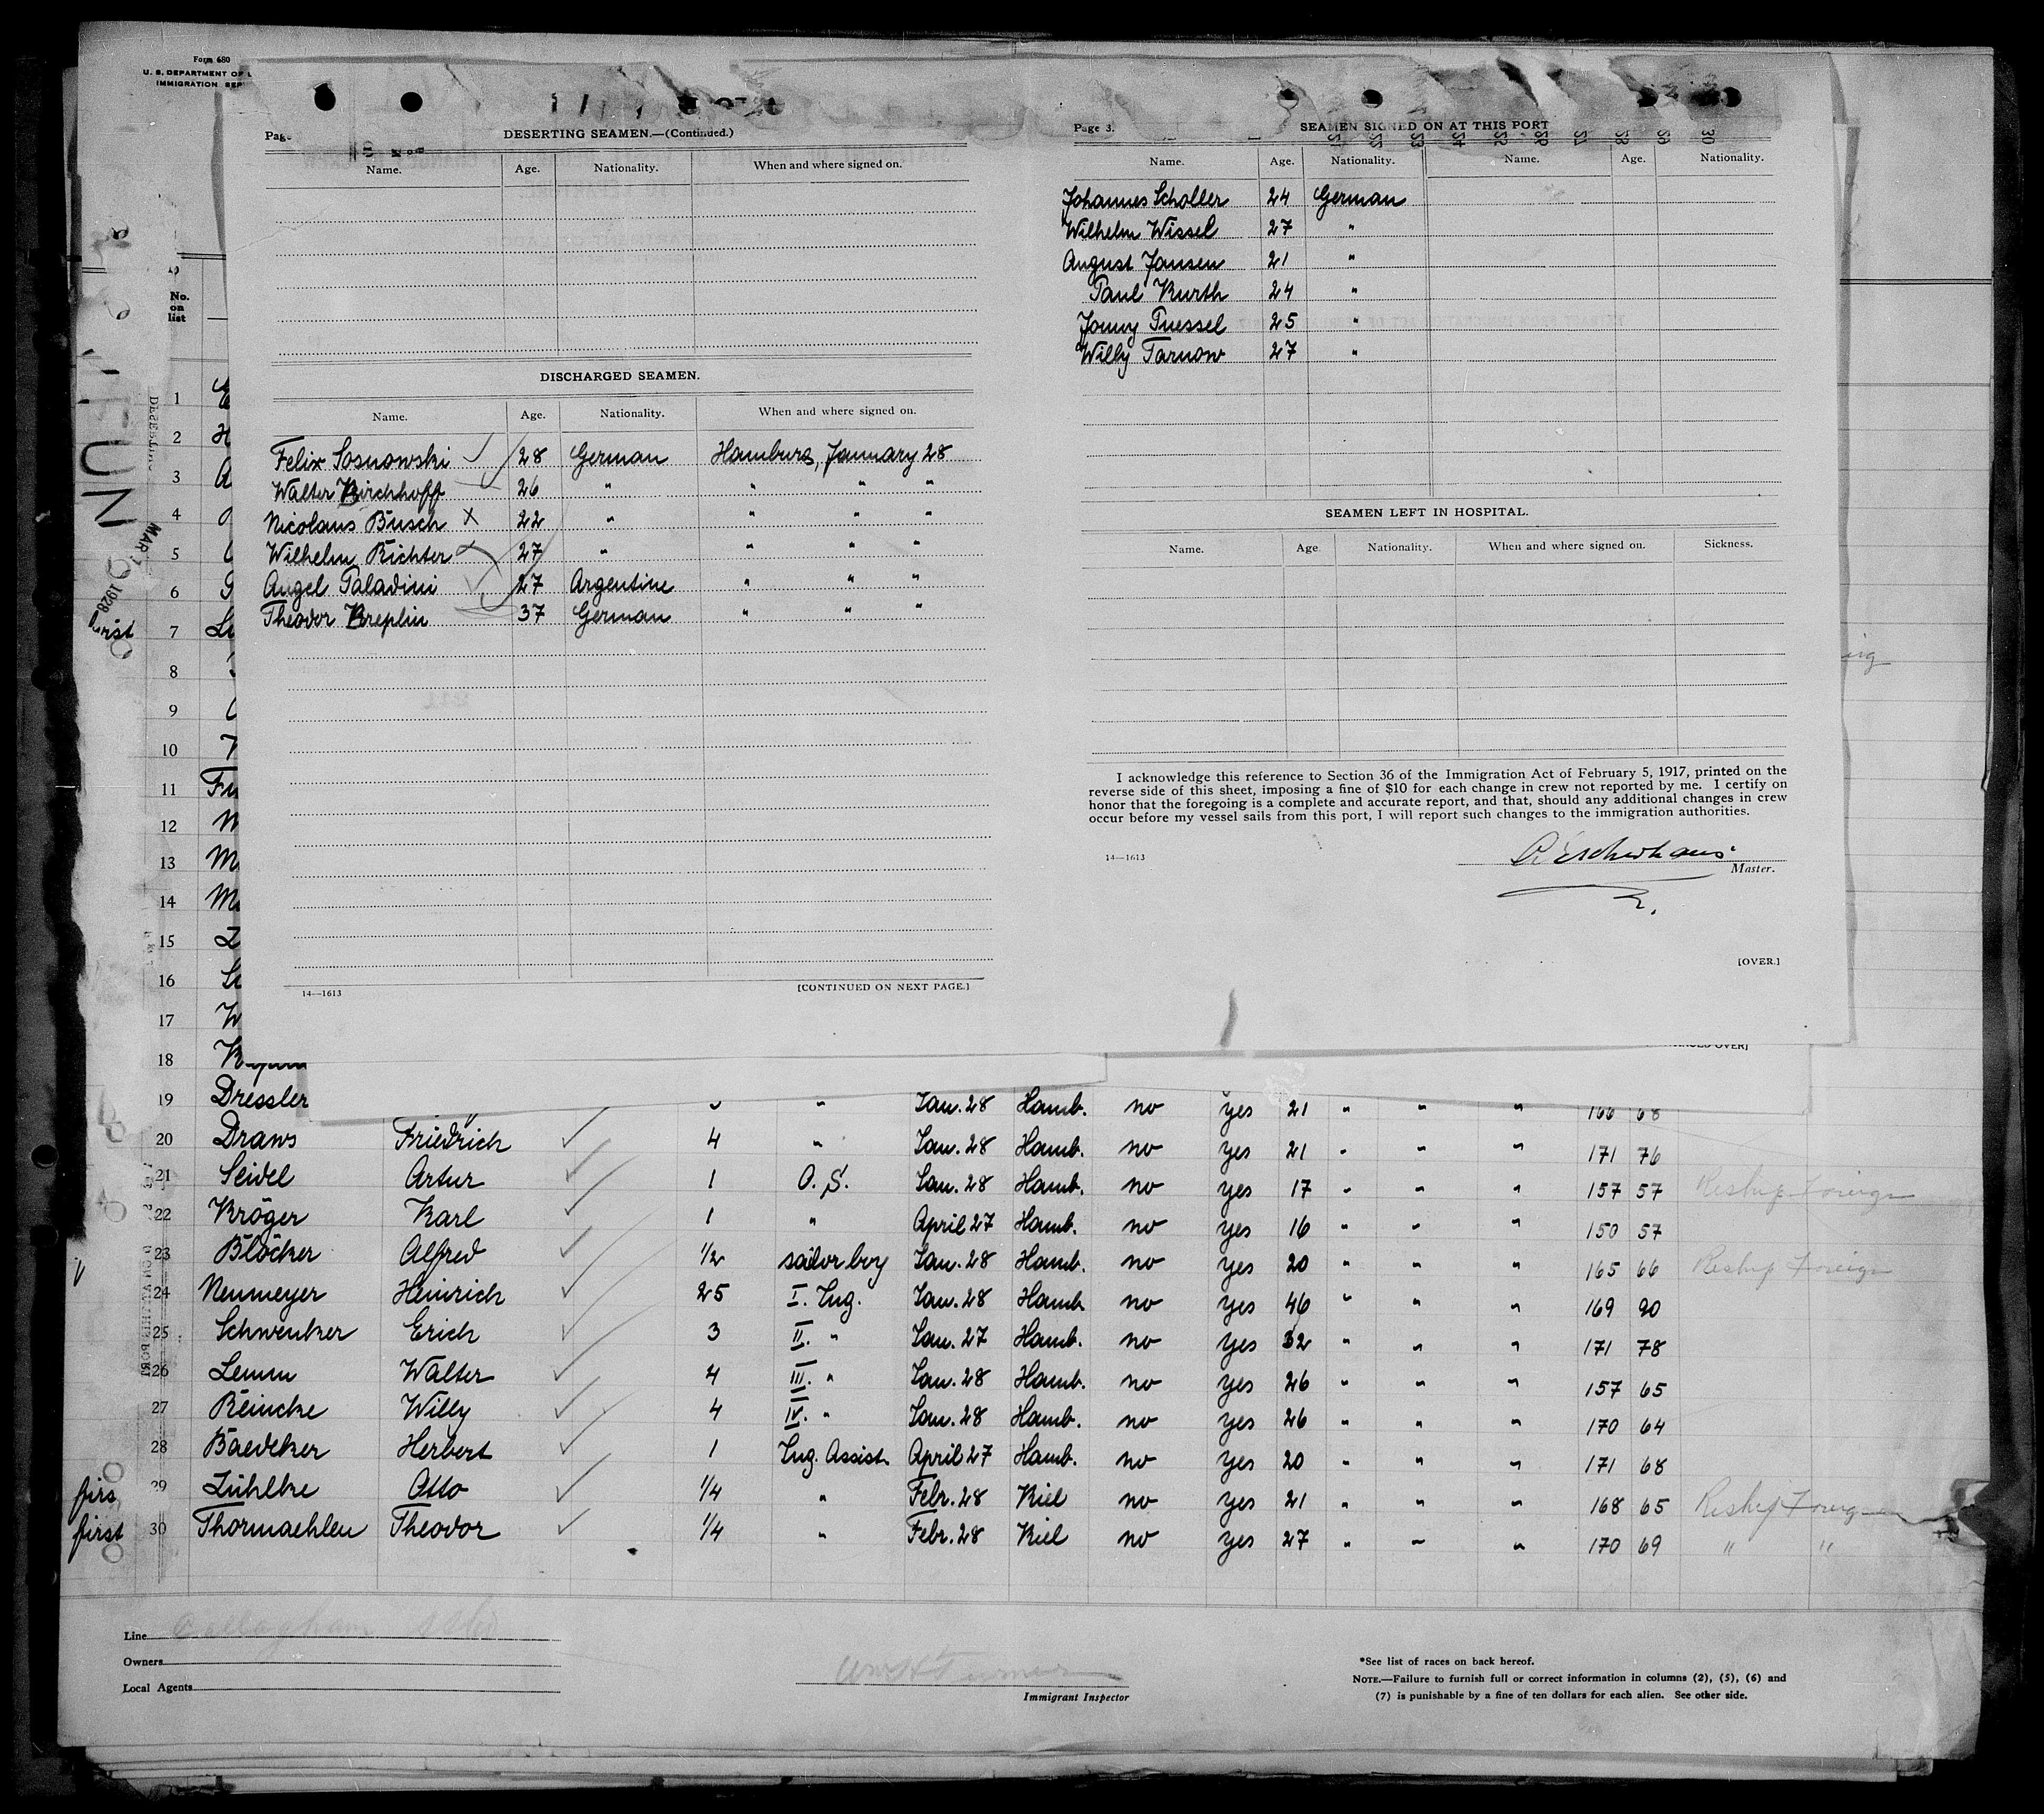 Form 680
U. S. DEPARTMENT OF
IMMIGRATION
No.
on
list
DESERTING SEAMEN.—(Continued.)
Name. Age. Nationality. When and where signed on.
DISCHARGED SEAMEN.
Name. Age. Nationality. When and where signed on.
Felix Sosnowski 28 German Hamburg, January 28
Walter Kirchhoff 26 " " " "
Nicolaus Busch X 22 " " " "
Wilhelm Richter 27 " " " "
Angel Paladini 27 Argentine " " "
Theodor Kreplin 37 German " " "
14—1613 [CONTINUED ON NEXT PAGE.]
Page 3. SEAMEN SIGNED ON AT THIS PORT
Name. Age. Nationality. Name. Age. Nationality.
Johannes Scholler 24 German
Wilhelm Wissel 27 "
August Jansen 21 "
Paul Kurth 24 "
Jonny Tuessel 25 "
Willy Tarnow 27 "
SEAMEN LEFT IN HOSPITAL.
Name. Age Nationality. When and where signed on. Sickness.
I acknowledge this reference to Section 36 of the Immigration Act of February 5, 1917, printed on the
reverse side of this sheet, imposing a fine of $10 for each change in crew not reported by me. I certify on
honor that the foregoing is a complete and accurate report, and that, should any additional changes in crew
occur before my vessel sails from this port, I will report such changes to the immigration authorities.
14—1613
Master.
[OVER.]
MAR 1928
1
2
3
4
5
6
7
8
9
10
11
12
13
14
15
16
17
18
19 Dressler " Jan. 28 Hamb. no yes 21 " " " 166 68
20 Draws Friedrich 4 " Jan. 28 Hamb. no yes 21 " " " 171 76
21 Seidel Artur 1 O. S. Jan. 28 Hamb. no yes 17 " " " 157 57 Reship Foreign
22 Kröger Karl 1 " April 27 Hamb. no yes 16 " " " 150 57
23 Blöcker Alfred 1/2 sailor boy Jan. 28 Hamb. no yes 20 " " " 165 66 Reship Foreign
24 Neumeyer Heinrich 25 I. Ing. Jan. 28 Hamb no yes 46 " " " 169 90
25 Schwentzer Erich 3 II. " Jan. 27 Hamb. no yes 32 " " " 171 78
26 Lemm Walter 4 III. " Jan. 28 Hamb. no yes 26 " " " 157 65
27 Reincke Willy 4 IV. " Jan. 28 Hamb. no yes 26 " " " 170 64
28 Baedeker Herbert 1 Ing. Assist. April 27 Hamb. no yes 20 " " " 171 68
firs 29 Lühlke Otto 1/4 " Febr. 28 Kiel no yes 21 " " " 168 65 Reship Foreign
first 30 Thormaehlen Theodor 1/4 " Febr. 28 Kiel no yes 27 " " " 170 69 " "
Line
Owners
Local Agents
Immigrant Inspector
*See list of races on back hereof.
NOTE.—Failure to furnish full or correct information in columns (2), (5), (6) and
(7) is punishable by a fine of ten dollars for each alien. See other side.